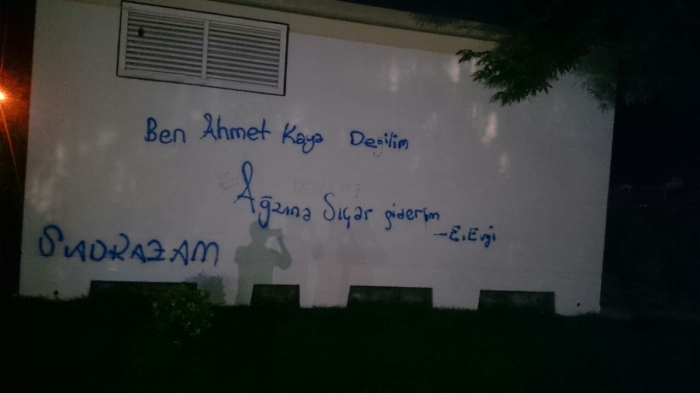 Ben Ahmet Kaya Değilim
Ağzına Sıçar giderim
-E.Ezgi
SADRAZAM